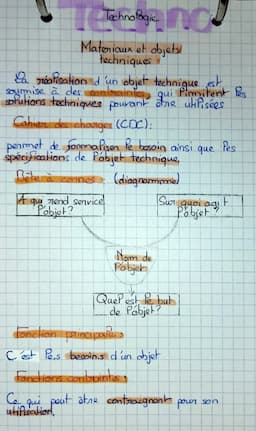 Techno
Technologie
Materiaux et objets
techniques
La réalisation d'un objet technique est
soumise à des contraintes qui limitent les
solutions techniques pouvant être utilisées
Cahier des charges (CDC):
permet de formaliser le besoin ainsi que les
spécifications de l'objet technique.
Bête à cornes (diagramme)
A qui rend service
l'objet?
Sur quoi agit
l'objet?
Nom de
l'objet
Quel est le but
de l'objet?
Fonction principales
C'est les besoins d'un objet
Fonctions contraintes
Ce qui peut être contraignant pour son
utilisation.